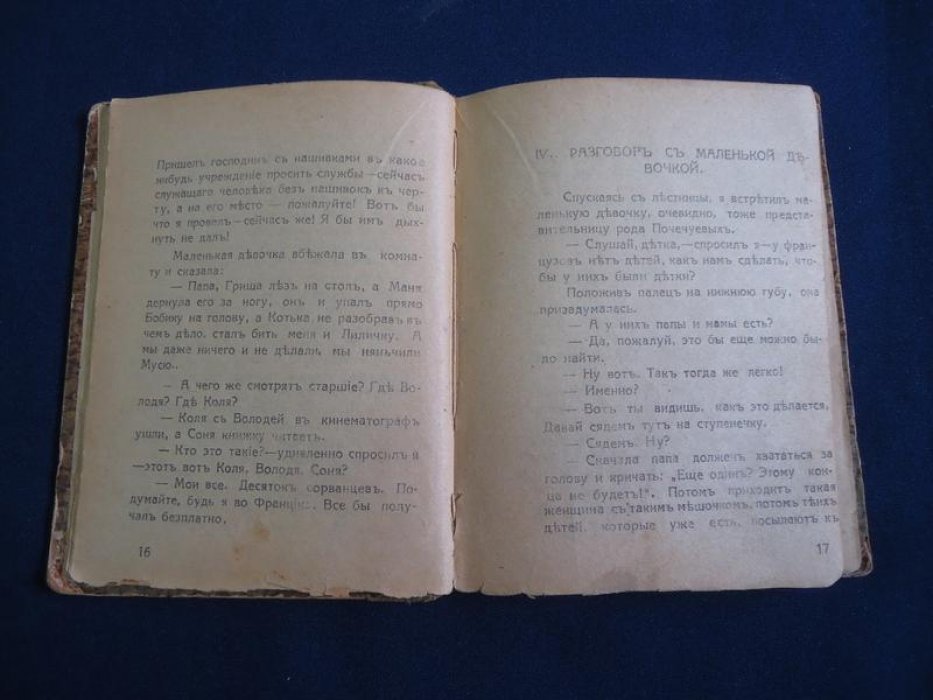 Пришелъ господинъ съ нашивками въ какое
нибудь учрежденіе просить службы—сейчасъ
служащаго человѣка безъ нашивокъ къ чер-
ту, а на его мѣсто — пожалуйте! Вотъ бы
что я провелъ—сейчасъ же! Я бы имъ дых-
нуть не далъ!
Маленькая дѣвочка вбѣжала въ комна-
ту и сказала:
— Папа, Гриша лѣзъ на столъ, а Маня
дернула его за ногу, онъ и упалъ прямо
Бобику на голову, а Котька не разобравъ въ
чемъ дѣло, сталъ бить меня и Лиличку. А
мы даже ничего и не дѣлали, мы няньчили
Мусю..
— А чего же смотрятъ старшіе? Гдѣ Во-
лодя? Гдѣ Коля?
— Коля съ Володей въ кинематографъ
ушли, а Соня книжку читаетъ.
— Кто это такіе?—удивленно спросилъ я
—этотъ вотъ Коля, Володя, Соня?
— Мои все. Десятокъ сорванцевъ. По-
думайте, будь я во Франціи.. Все бы полу-
чалъ безплатно.
16
IV.. РАЗГОВОРЪ СЪ МАЛЕНЬКОЙ ДѢ-
ВОЧКОЙ.
Спускаясь съ лѣстницы, я встрѣтилъ ма-
ленькую дѣвочку, очевидно, тоже предста-
вительницу рода Почечуевыхъ.
— Слушай, дѣтка,—спросилъ я—у фран-
цузовъ нѣтъ дѣтей, какъ намъ сдѣлать, что-
бы у нихъ были дѣтки?
Положивъ палецъ на нижнюю губу, она
призадумалась.
— А у нихъ папы и мамы есть?
— Да, пожалуй, это бы еще можно бы-
ло найти.
— Ну вотъ. Такъ тогда же легко!
— Именно?
— Вотъ ты видишь, какъ это дѣлается,
Давай сядемъ тутъ на ступенечку.
— Сядемъ. Ну?
— Сначала папа долженъ хвататься за
голову и кричать: „Еще одинъ? Этому кон-
ца не будетъ!". Потомъ приходитъ такая
женщина съ такимъ мѣшочкомъ, потомъ тѣхъ
дѣтей, которые уже есть, посылаютъ къ
17